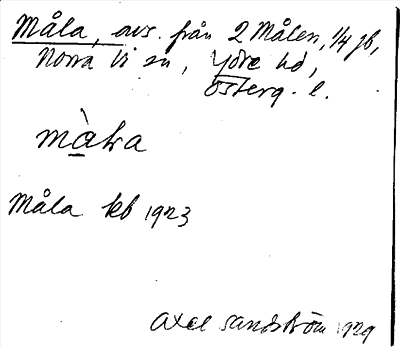 Måla, avs. från 2 Målen, 1/4 jb,
Norra Vi sn, Ydre hd,
Österg. l.
Måla kb 1923
Axel Sandström 1929